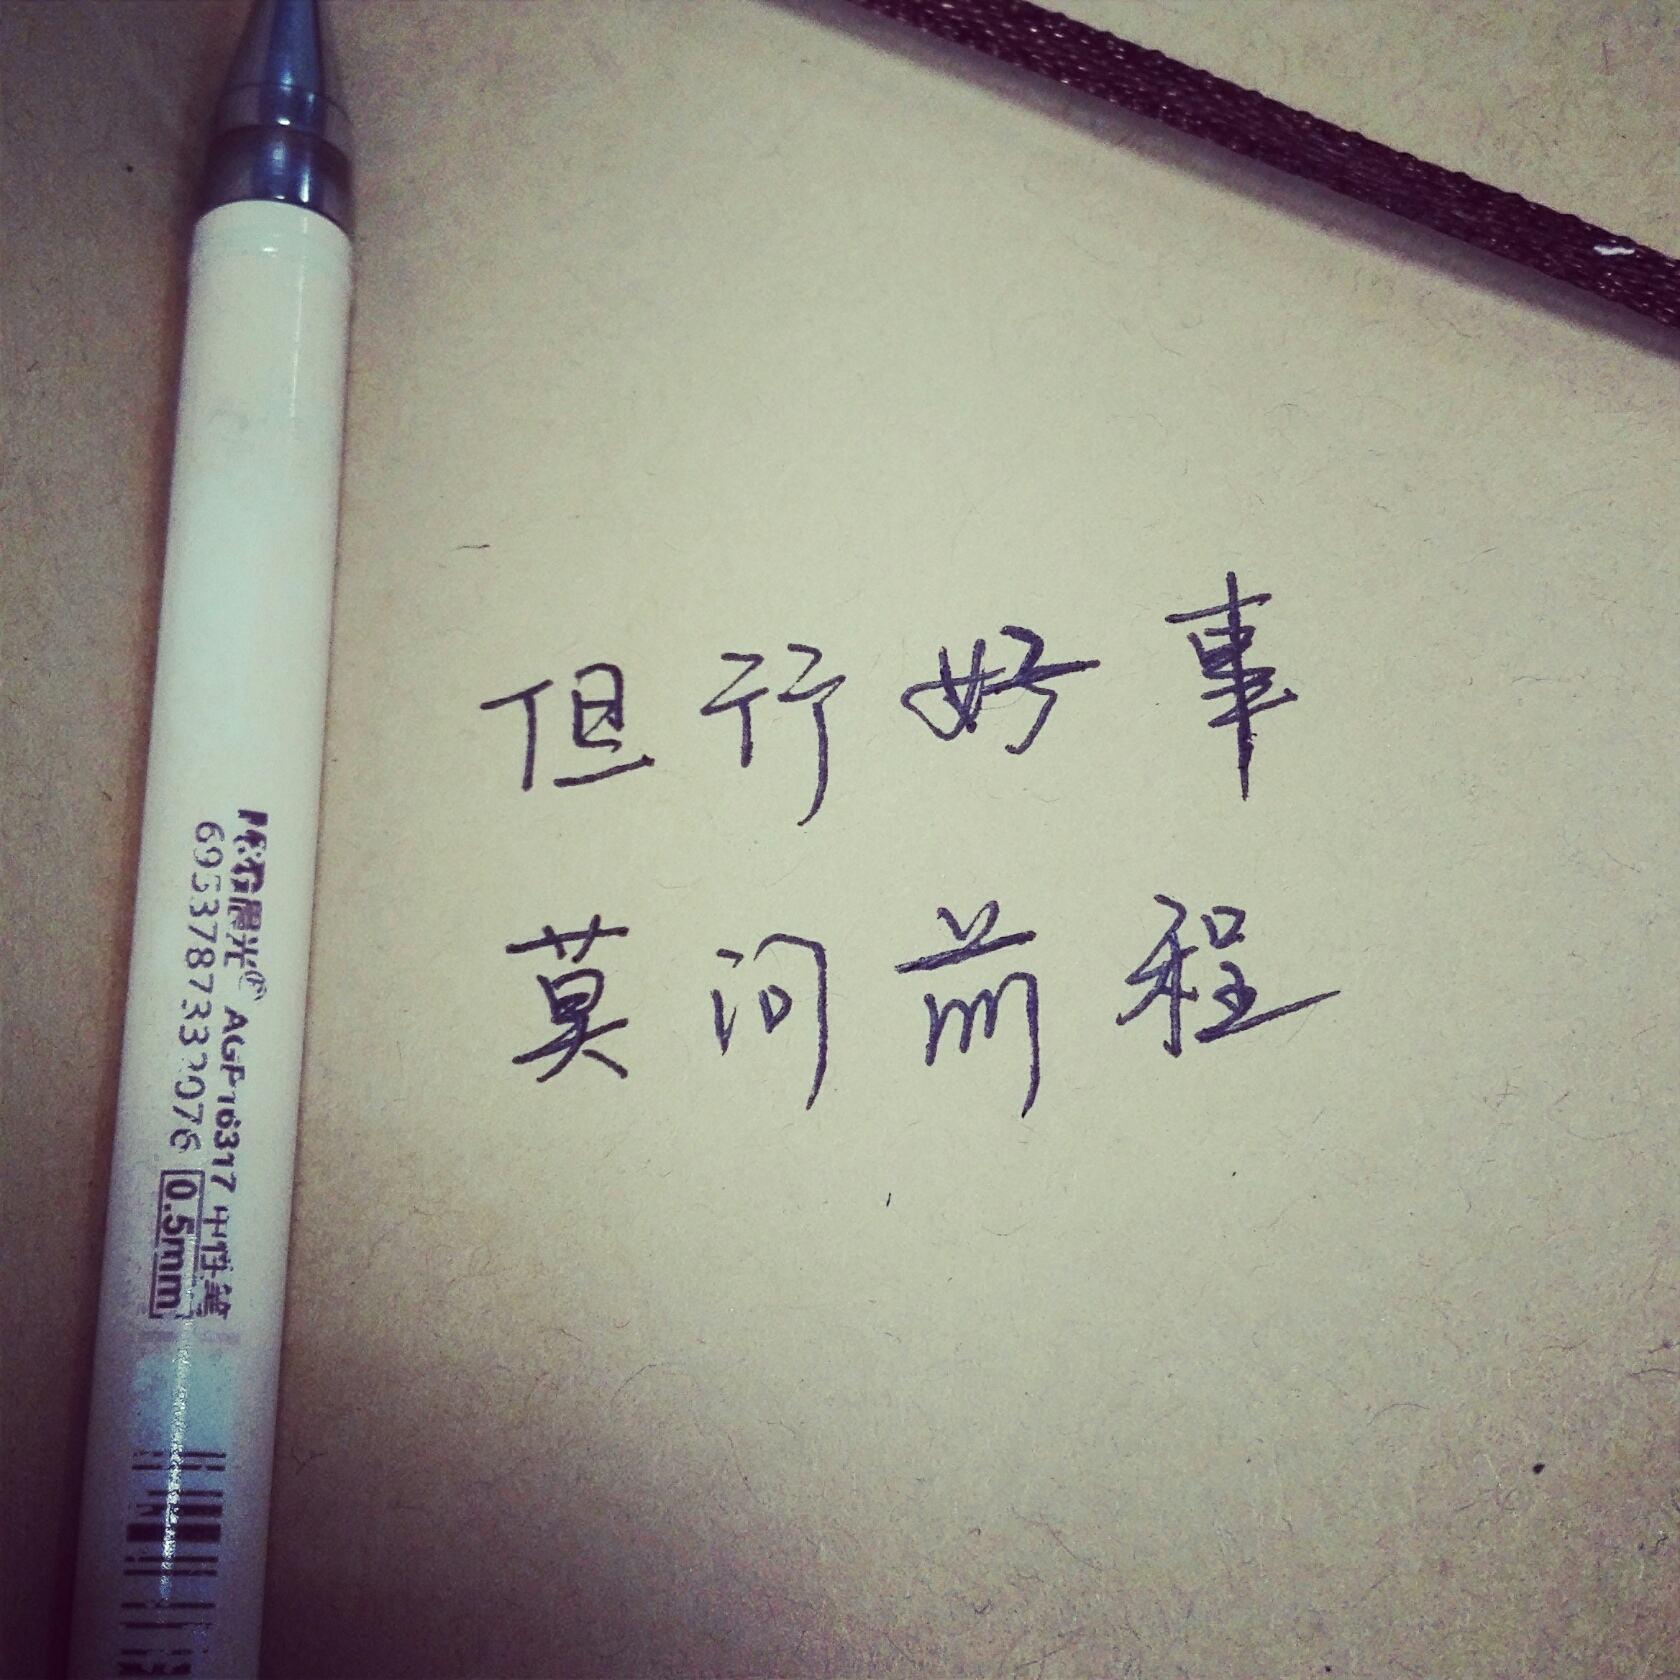 但行好事
莫问前程
M&G晨光® AGP16317 中性笔
6953787332076 0.5mm